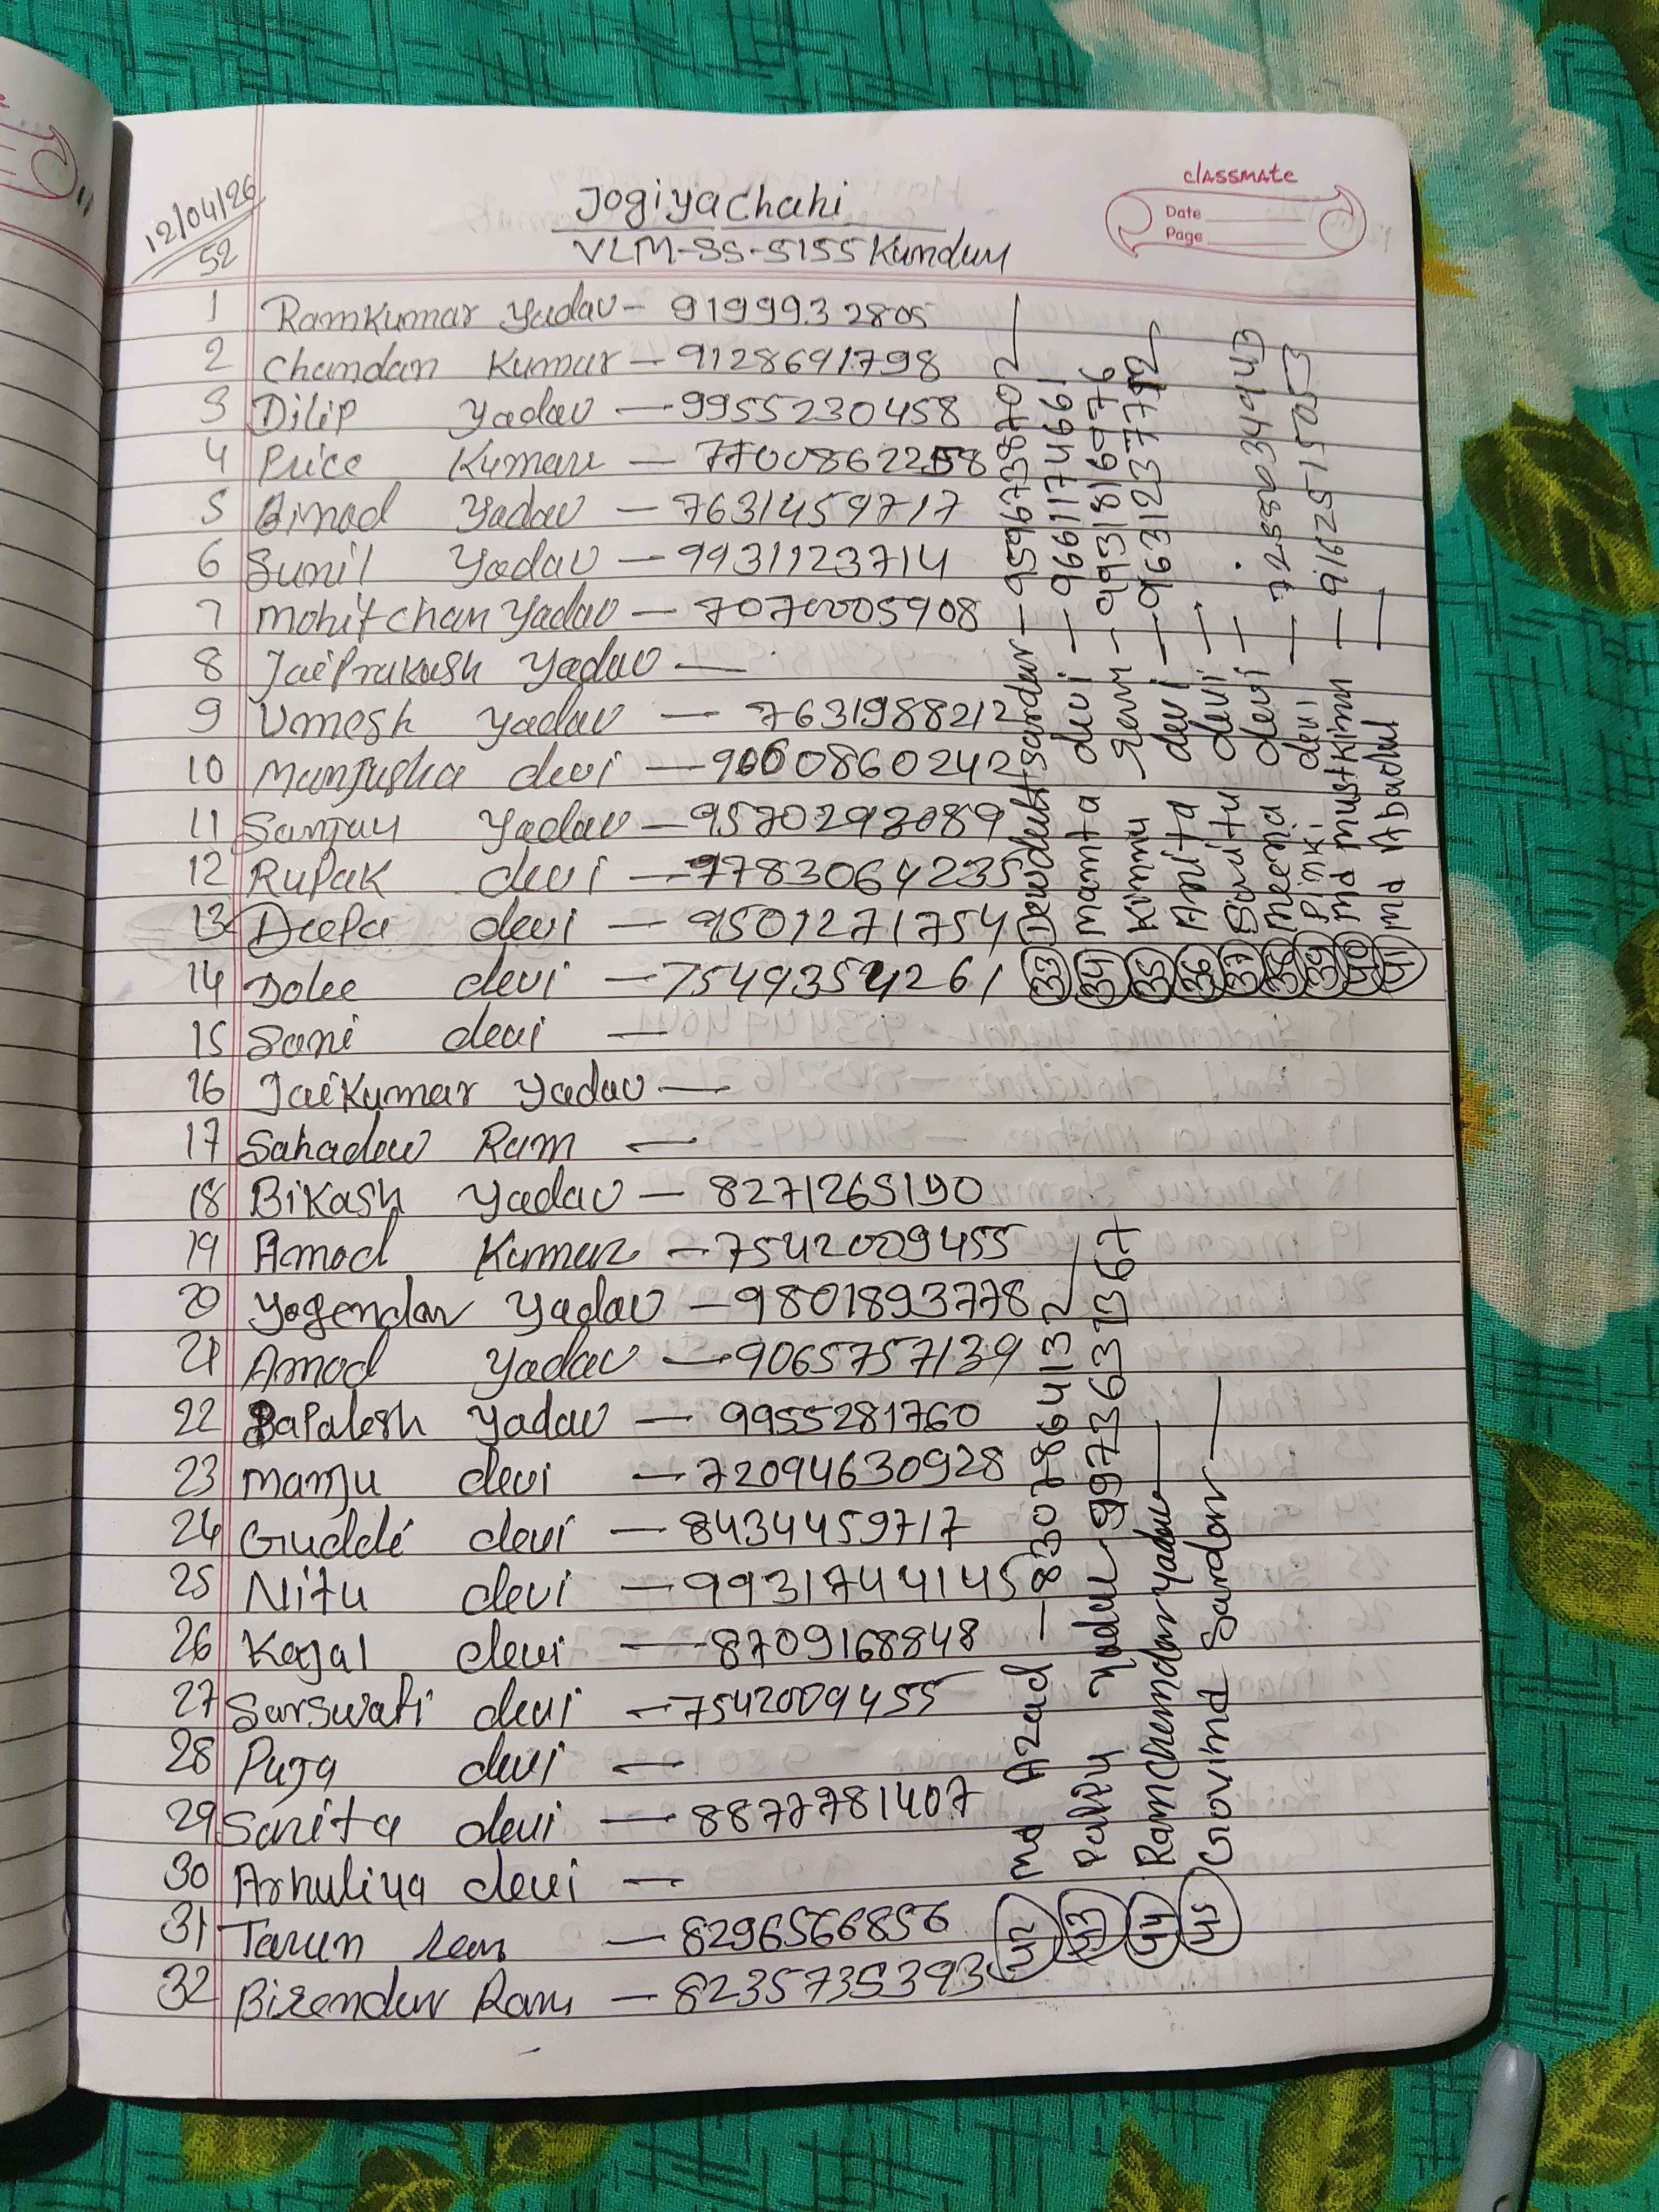 12/04/26
52
Jogiyachahi
VLM-SS-S155 Kundun
classmate
Date
Page
1 Ramkumar Yadav - 9199932805
2 Chandan Kumar - 9128691798
3 Dilip Yadav - 9955230458
4 Price Kumar - 7700862258
5 Amod Yadav - 7631459717
6 Sunil Yadav - 9931123714
7 Mohitchan Yadav - 7070005908
8 JaiPrakash Yadav -
9 Umesh Yadav - 7631988212
10 Manjusha devi - 9060860242
11 Sanjay Yadav - 9570293089
12 Rupak devi - 7783064235
13 Deepa devi - 9501271754
14 Dolee devi - 7549354261
15 Sani devi -
16 Jaikumar Yadav -
17 Sahadew Ram -
18 Bikash Yadav - 8271265190
19 Amod Kumar - 7542009455
20 Yogendar Yadav - 9801893778
21 Amod Yadav - 9065757139
22 Bapalesh Yadav - 9955281760
23 Manju devi - 72094630928
24 Guddi devi - 8434459717
25 Nitu devi - 99317444145
26 Kajal devi - 8709168848
27 Sarswati devi - 7542009455
28 Puja devi -
29 Sarita devi - 8877781407
30 Arhuliya devi -
31 Tarun ram - 8296566856
32 Birendur Ram - 8235735393
33 Dewdutt sardar - 9596738702
34 Mamta devi - 9661174661
35 Kimmu - 9931816976
36 Anita devi - 9631237792
37 Saritu devi -
38 Meena devi -
39 Pinki devi - 7258034943
40 md mustkimu - 9162515053
41 md Abadul -
42 md Azad - 8307864132
43 Yadav - 9973631367
44 Ramchemdar Yadav -
45 Govind Sardar -